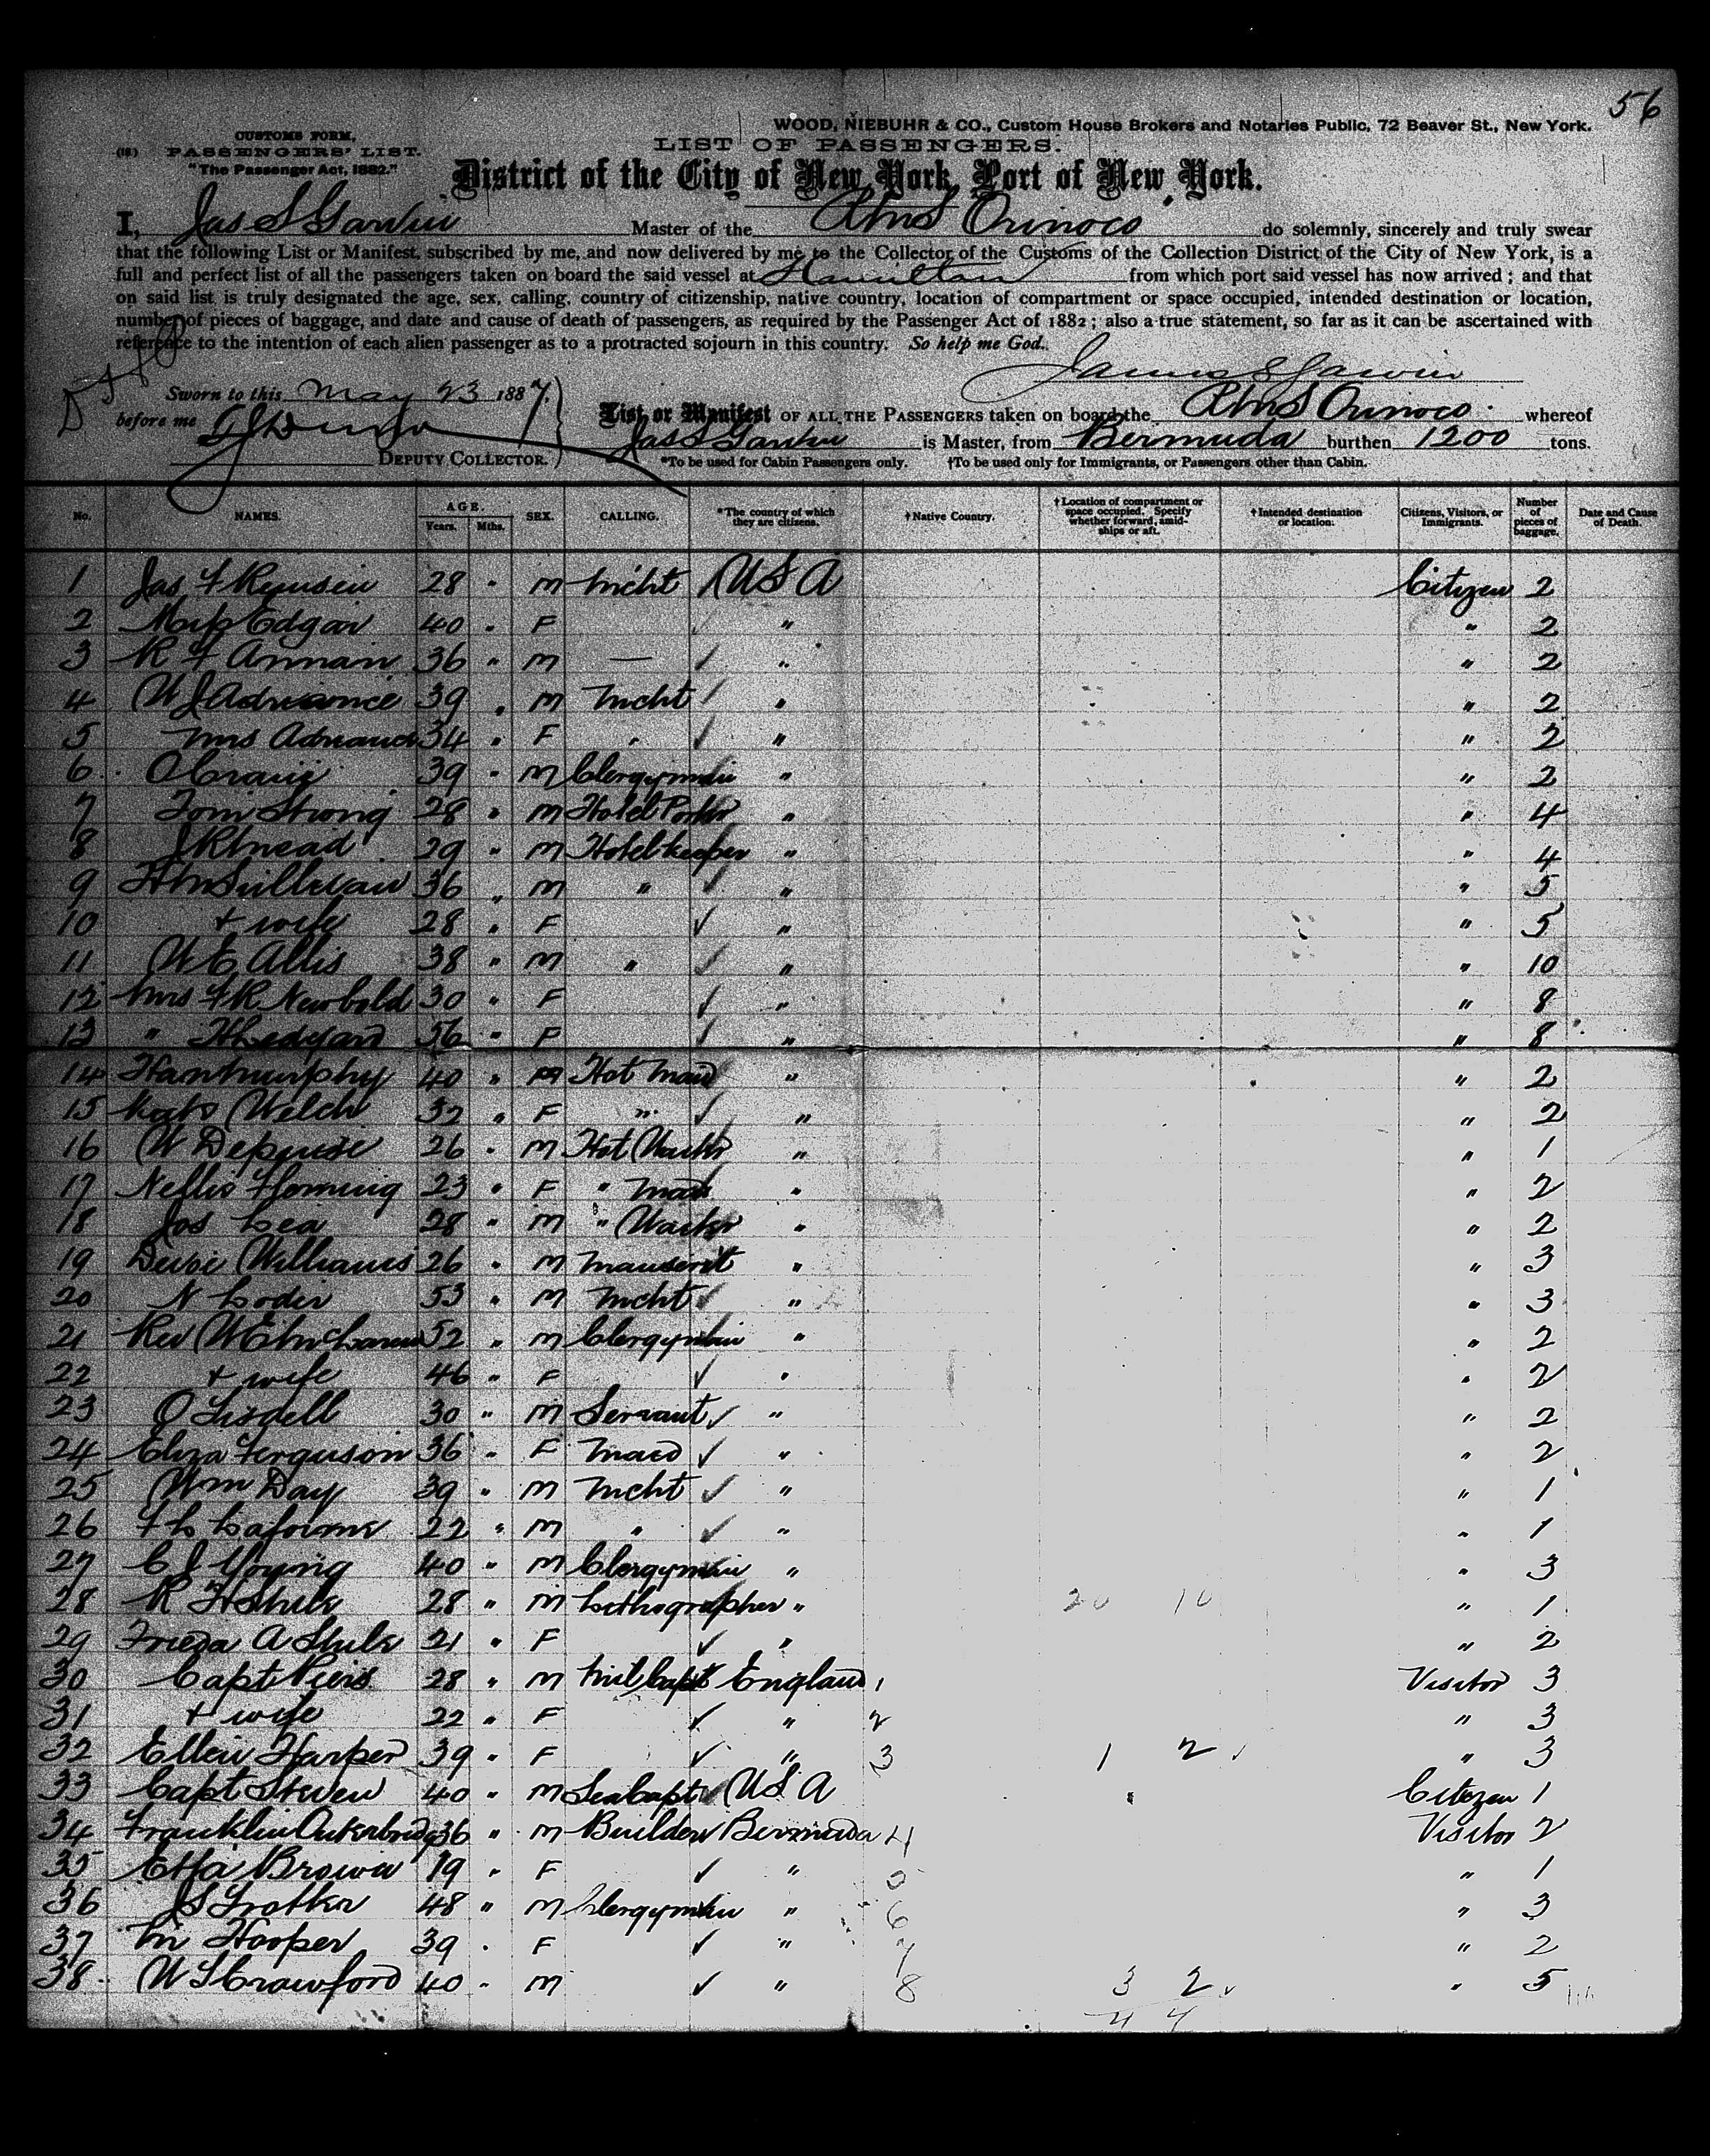 56
WOOD, NIEBUHR & CO., Custom House Brokers and Notaries Public, 72 Beaver St., New York.
CUSTOMS FORM,
PASSENGERS' LIST.
"The Passenger Act, 1882."
LIST OF PASSENGERS.
District of the City of New York, Port of New York.
I, Jas S Garvin Master of the RMS Orinoco do solemnly, sincerely and truly swear
that the following List or Manifest, subscribed by me, and now delivered by me to the Collector of the Customs of the Collection District of the City of New York, is a
full and perfect list of all the passengers taken on board the said vessel at Hamilton from which port said vessel has now arrived; and that
on said list is truly designated the age, sex, calling, country of citizenship, native country, location of compartment or space occupied, intended destination or location,
number of pieces of baggage, and date and cause of death of passengers, as required by the Passenger Act of 1882; also a true statement, so far as it can be ascertained with
reference to the intention of each alien passenger as to a protracted sojourn in this country. So help me God.
James S Garvin
Sworn to this May 23 1887.
before me
DEPUTY COLLECTOR.
List or Manifest OF ALL THE PASSENGERS taken on board the RMS Orinoco whereof
Jas S Garvin is Master, from Bermuda burthen 1200 tons.
*To be used for Cabin Passengers only. †To be used only for Immigrants, or Passengers other than Cabin.
No. NAMES. AGE. Years. Mths. SEX. CALLING. *The country of which they are citizens. †Native Country. †Location of compartment or space occupied. Specify whether forward, amidships or aft. †Intended destination or location. Citizens, Visitors, or Immigrants. Number of pieces of baggage. Date and Cause of Death.
1 Jas F 28 " M Mcht USA Citizen 2
2 Edgar 40 " F " " 2
3 R F Annan 36 " M — " " 2
4 W J Adriance 39 " M Mcht " " 2
5 Mrs Adriance 34 " F " " " 2
6 O Craig 39 " M Clergyman " " 2
7 Tom Strong 28 " M Hotel Porter " " 4
8 Mead 29 " M Hotel keeper " " 4
9 Sullivan 36 " M " " " 5
10 + wife 28 " F " " 5
11 W E Allis 38 " M " " " 10
12 Mrs F R Newbold 30 " F " " 8
13 " H Ledyard 56 " F " " 8
14 Han Murphy 40 " F Hot Maid " " 2
15 Kate Welch 32 " F " " " 2
16 W 26 " M Hot Waiter " " 1
17 Nellie Fleming 23 " F " Maid " " 2
18 Jas Lea 28 " M " Waiter " " 2
19 Williams 26 " M " " 3
20 N Loder 53 " M Mcht " " 3
21 Rev W E McLaren 52 " M Clergyman " " 2
22 + wife 46 " F " " 2
23 O Lisdell 30 " M Servant " " 2
24 Eliza Ferguson 36 " F Maid " " 2
25 Wm Day 39 " M Mcht " " 1
26 22 " M " " " 1
27 C J Young 40 " M Clergyman " " 3
28 R H 28 " M Lithographer " 20 10 " 1
29 Frieda A 21 " F " " 2
30 Capt Piers 28 " M Mil Capt England 1 Visitor 3
31 + wife 22 " F " 2 " 3
32 Ellen Harper 39 " F " 3 1 2 " 3
33 Capt Steven 40 " M Sea Capt USA Citizen 1
34 Franklin Outerbridge 36 " M Builder Bermuda 4 Visitor 2
35 Etta Brown 19 " F " 5 " 1
36 J S Trotter 48 " M Clergyman " 6 " 3
37 M Hooper 39 " F " 7 " 2
38 W S Crawford 40 " M " 8 3 2 " 5
4 4